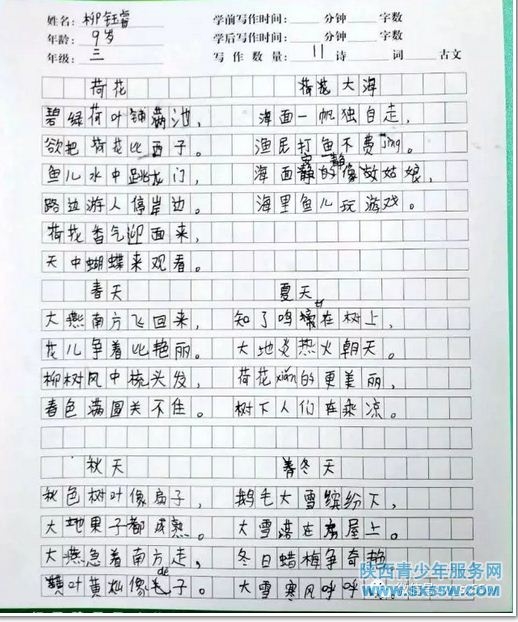 姓名：柳钰睿 学前写作时间：___分钟___字数
年龄：9岁 学后写作时间：___分钟___字数
年级：三 写作数量：11诗___词___古文
荷花
碧绿荷叶铺满池，
欲把荷花比西子。
鱼儿水中跳龙门，
路边游人停岸边。
荷花香气迎面来，
天中蝴蝶来观看。
大海
海面一帆独自走，
渔民打鱼不费jing。
海面寂静的像故姑娘，
海里鱼儿玩游戏。
春天
大燕南方飞回来，
花儿争着比艳丽。
柳树风中梳头发，
春色满园关不住。
夏天
知了鸣在树上，
大地炎热火朝天。
荷花xiǎn的更美丽，
树下人们在乘凉。
秋天
秋色树叶像扇子，
大地果子都成熟。
大燕急着南方走，
叶黄灿像毛de子。
冬天
鹅毛大雪缤纷下，
大雪落在房屋上。
冬日蜡梅争奇艳
大雪寒风呼呼
陕西青少年服务网
www.sx55w.com